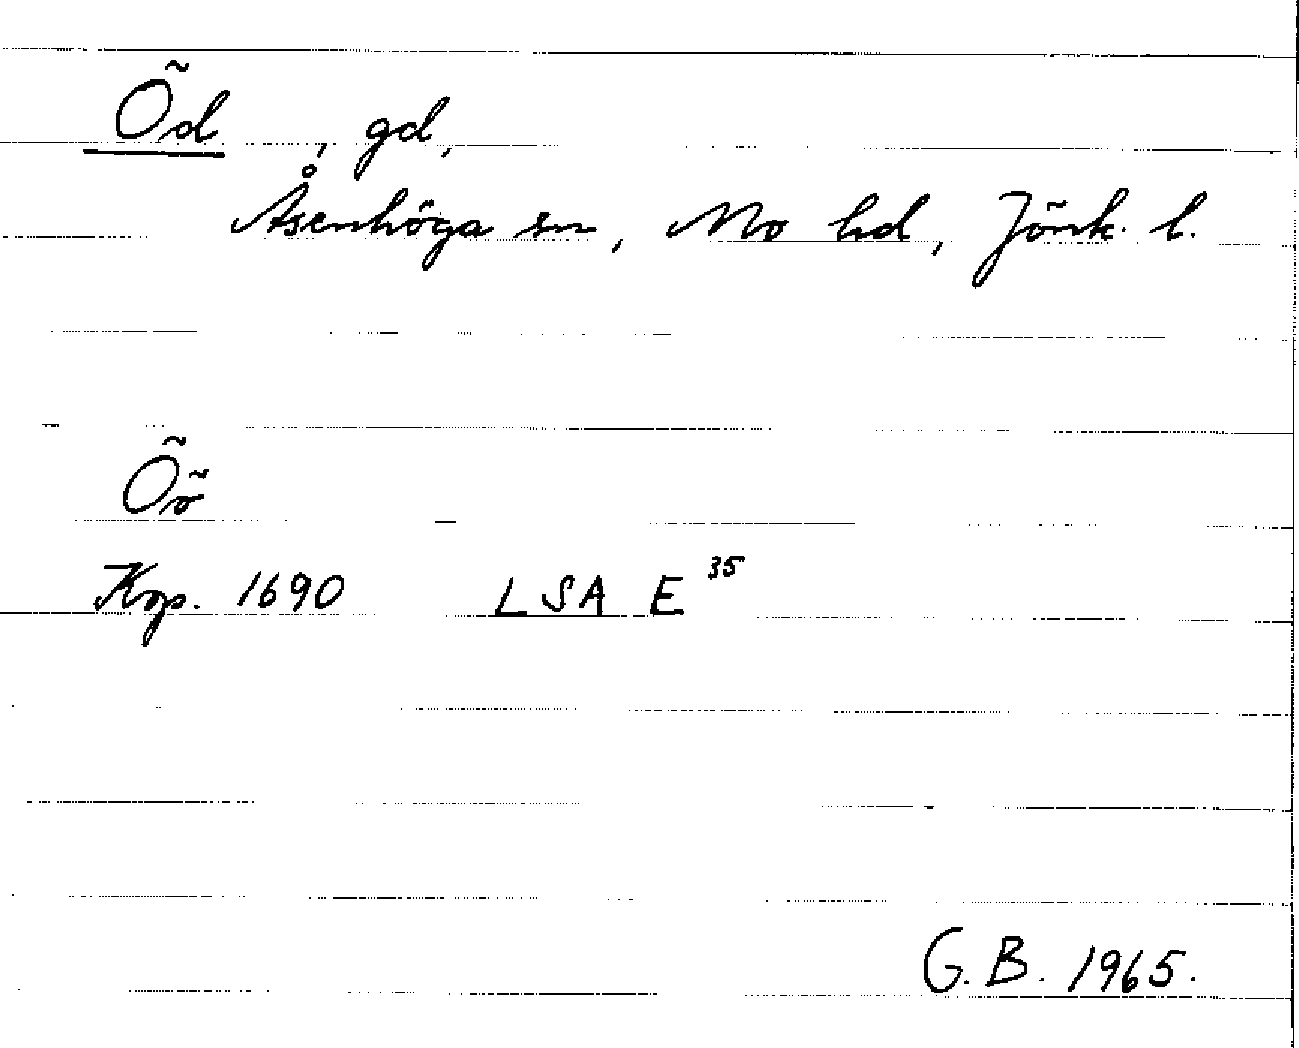 Öd , gd,
Åsenhöga sn, Mo hd, Jönk. l.
Öö
Kop. 1690 LSA E 35
G. B. 1965.